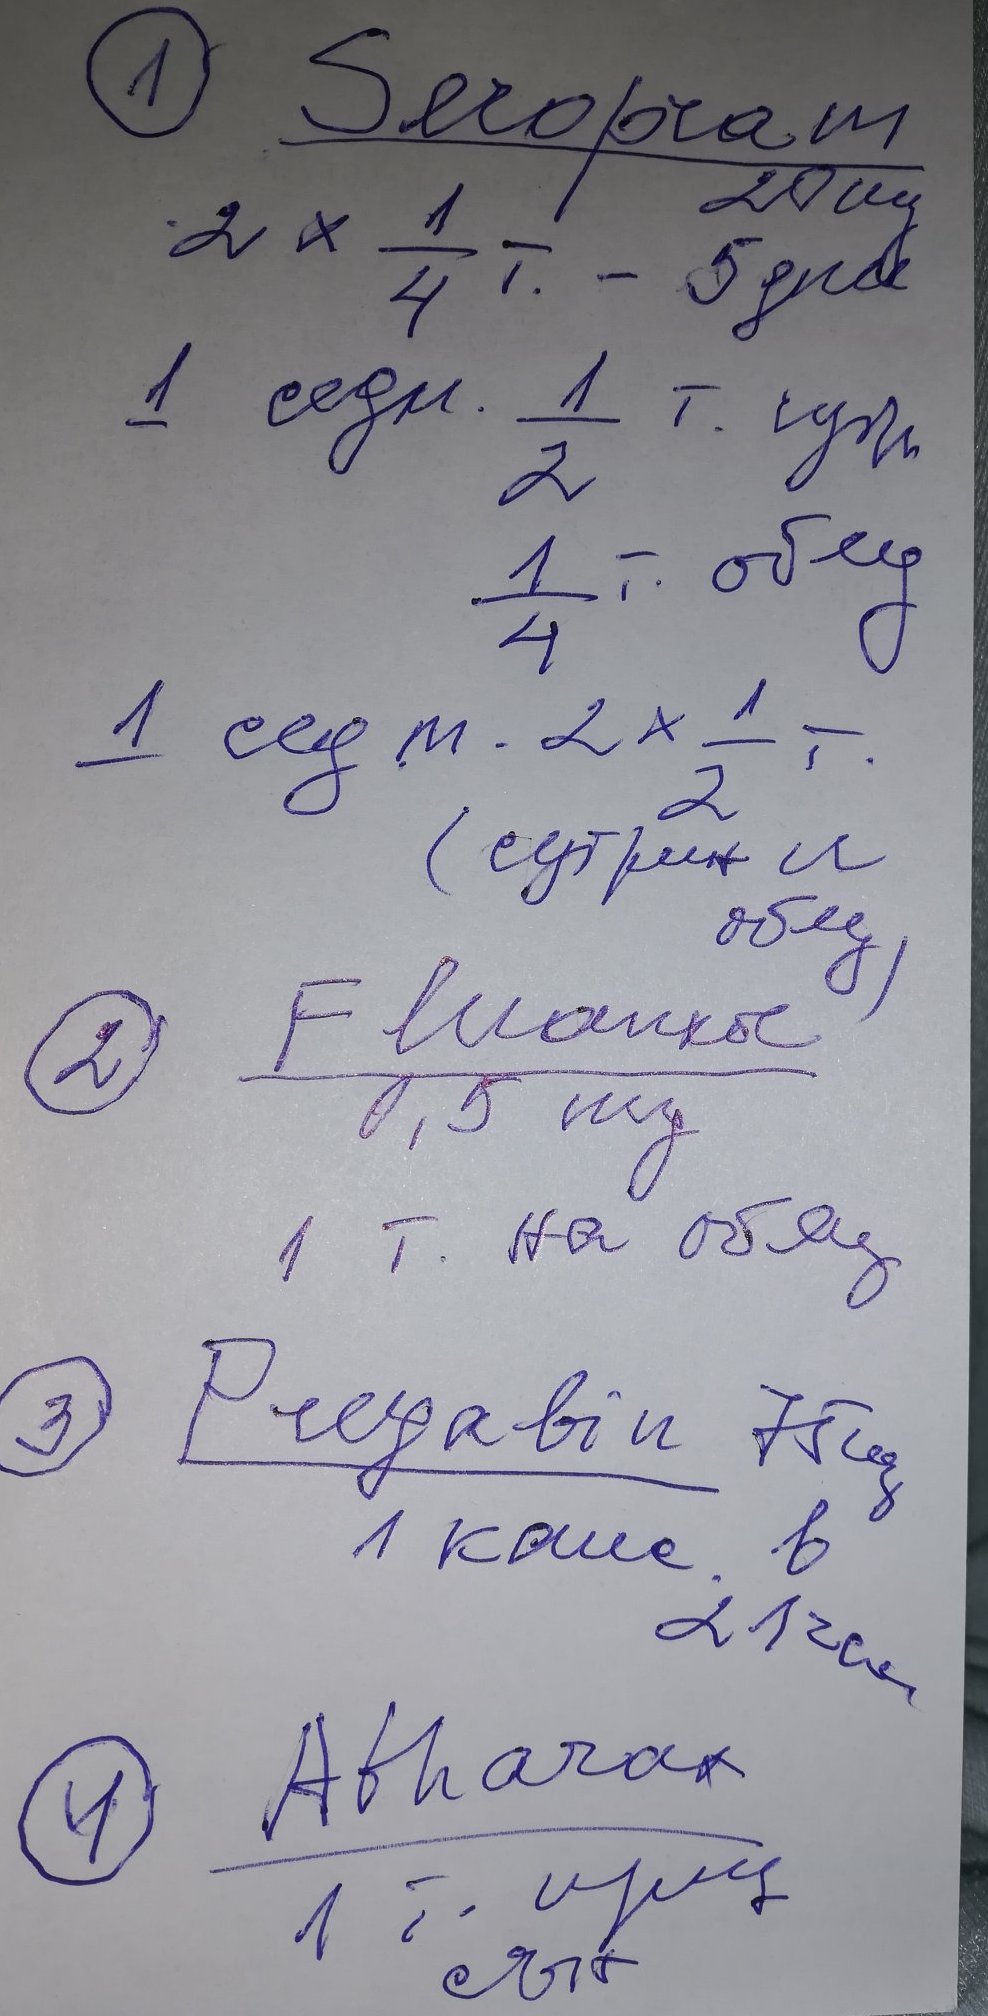 ① Seropram
20 mg
2 x 1/4 т. - 5 дни
1 седм. 1/2 т. сутр.
1/4 т. обяд
1 седм. 2 x 1/2 т.
(сутрин и
обяд)
② Fluanxol
0,5 mg
1 т. на обяд
③ Pregabin 75 mg
1 капс. в
21 часа
④ Atharax
1 т. пред
сън